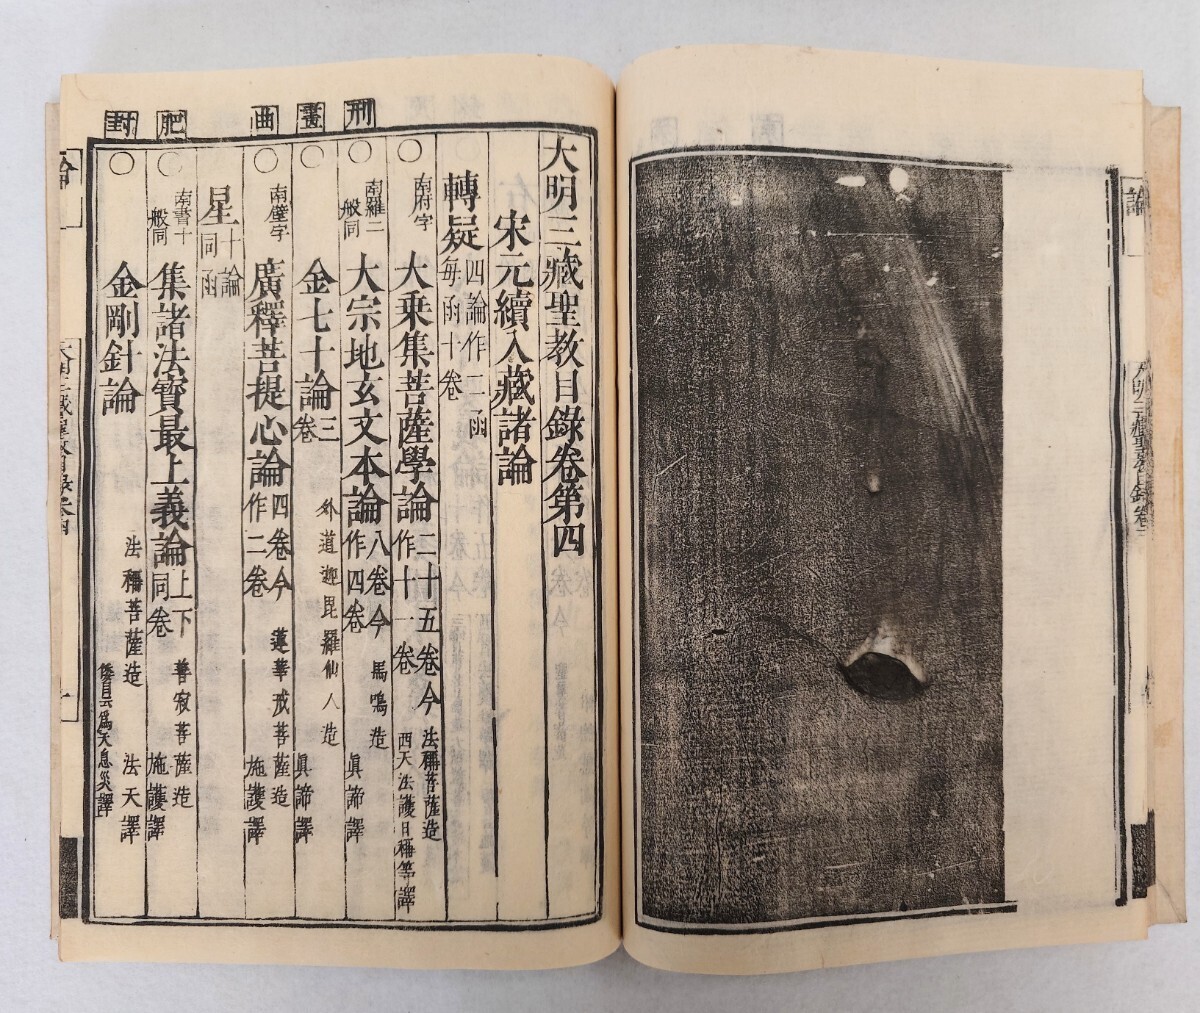 論
大明三藏聖教目錄卷三
大明三藏聖教目錄卷第四
宋元續入藏諸論
轉疑 四論作二函 每函十卷
刑
○ 南府字 大乘集菩薩學論 二十五卷今作十一卷 法稱菩薩造 西天法護日稱等譯
○ 南羅二般同 大宗地玄文本論 八卷今作四卷 馬鳴造 眞諦譯
畫
○ 金七十論 三卷 外道迦毘羅仙人造 眞諦譯
曲
○ 南壁字 廣釋菩提心論 四卷今作二卷 蓮華戒菩薩造 施護譯
星 十論同函
肥
○ 南書十般同 集諸法寶最上義論 上下同卷 善寂菩薩造 施護譯
封
○ 金剛針論 法稱菩薩造 法天譯
論
大明三藏聖教目錄卷四